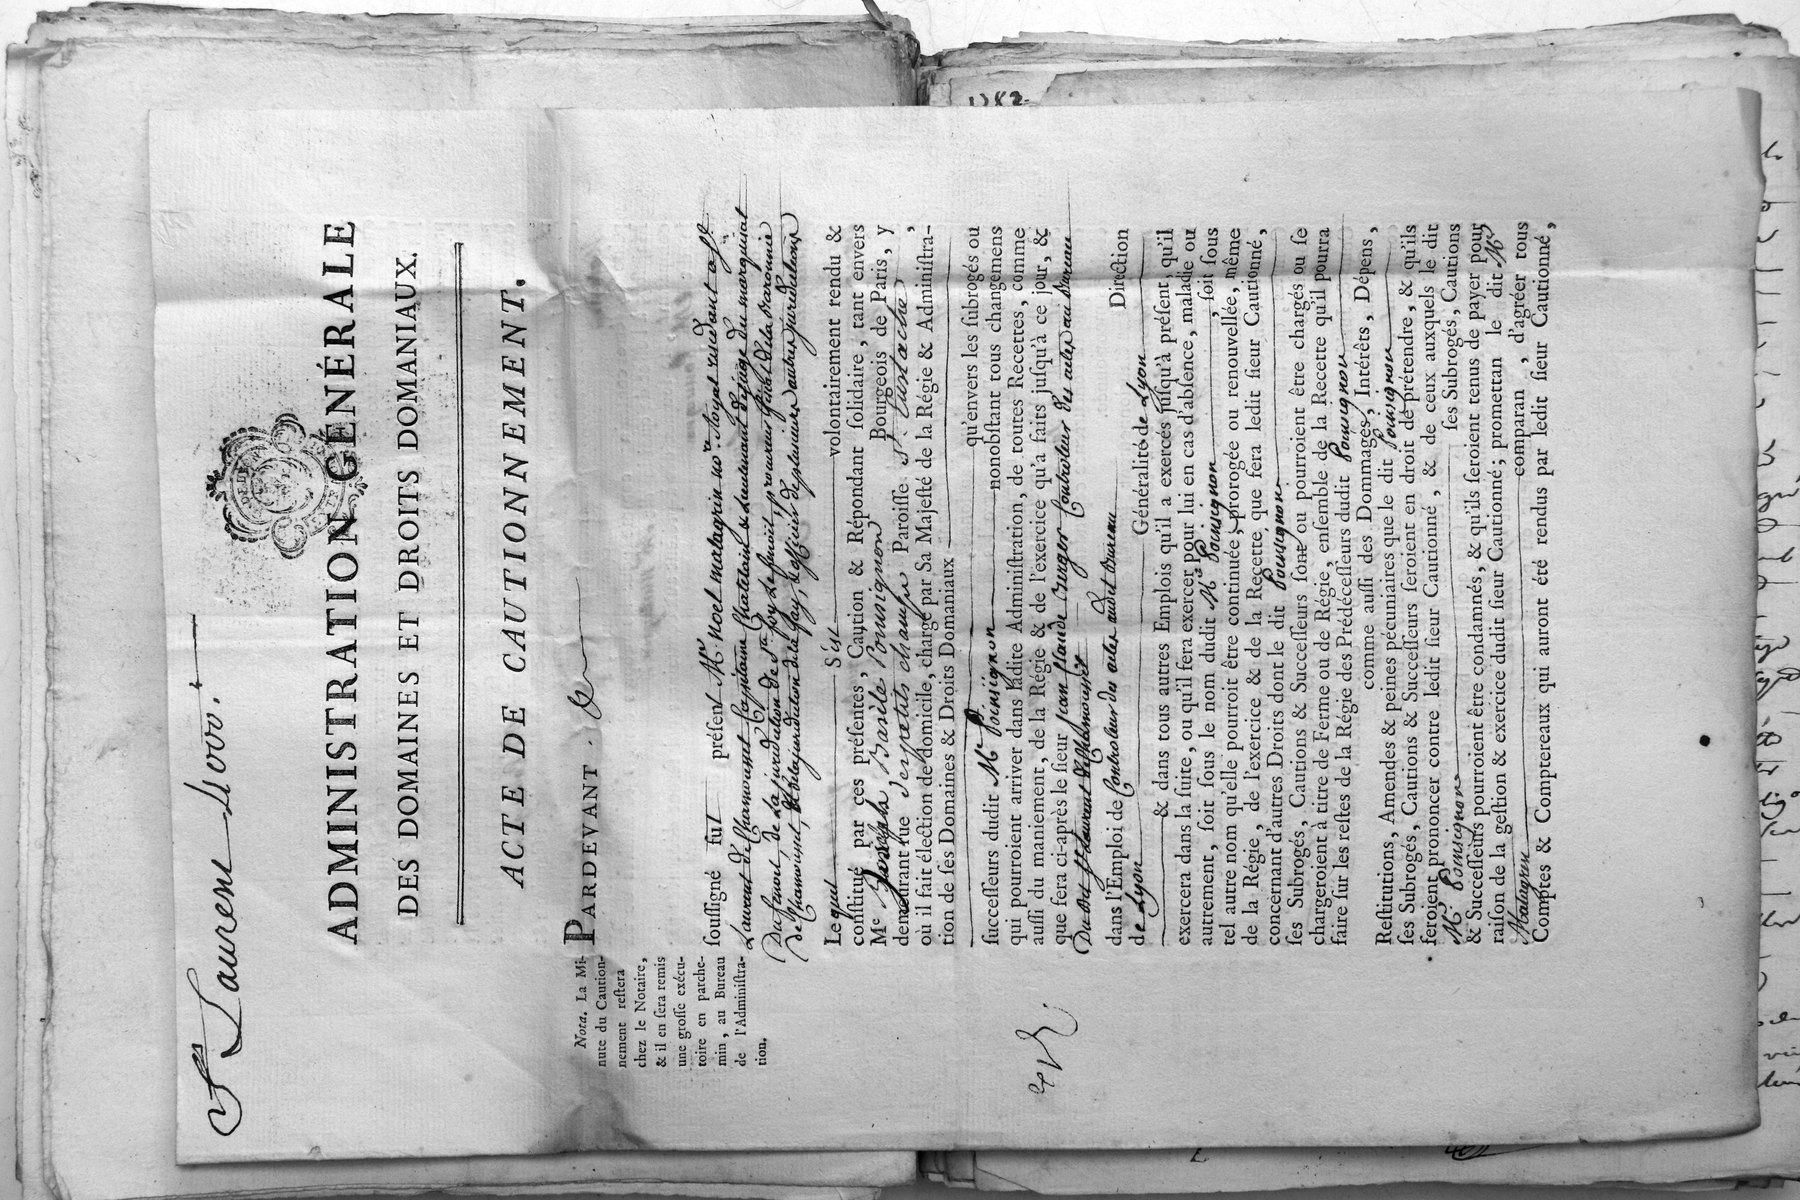 Sr Laurens 4000.tt
ADMINISTRATION GÉNÉRALE
DES DOMAINES ET DROITS DOMANIAUX.
ACTE DE CAUTIONNEMENT.
Nota. La Mi-
nute du Caution-
nement reſtera
chez le Notaire,
& il en ſera remis
une groſſe exécu-
toire en parche-
min, au Bureau
de l'Adminiſtra-
tion.
PARDEVANT.
ſouſſigné fut préſent Mre noel malagrin nore Royal reſidant a St
Laurent de Chamousset Capitaine Chatelain & Lieutenant de juge du marquisat
de la juridiction de Ste foy procureur fiscal de la Baronnie
de Chamousset, & de la juridiction de la fay, & officier de plusieurs autres juridictions
Lequel S'est volontairement rendu &
conſtitué par ces préſentes, Caution & Répondant ſolidaire, tant envers
Me Joseph Basile Poinsignon Bourgeois de Paris, y
demeurant rue des petits champs Paroiſſe St Eustache,
où il fait élection de domicile, chargé par Sa Majeſté de la Régie & Adminiſtra-
tion de ſes Domaines & Droits Domaniaux qu'envers les ſubrogés ou
ſucceſſeurs dudit Mre Poinsignon nonobſtant tous changemens
qui pourroient arriver dans ladite Adminiſtration, de toutes Recettes, comme
auſſi du maniement, de la Régie & de l'exercice qu'a faits juſqu'à ce jour, &
que fera ci-après le ſieur jean Claude Controleur des actes au Bureau
Dudit St Laurent de Chamousset
dans l'Emploi de Controleur des actes audit Bureau Direction
de Lyon Généralité de Lyon
& dans tous autres Emplois qu'il a exercés juſqu'à préſent qu'il
exercera dans la ſuite, ou qu'il fera exercer pour lui en cas d'abſence, maladie ou
autrement, ſoit ſous le nom dudit Mre Poinsignon, ſoit ſous
tel autre nom qu'elle pourroit être continuée, prorogée ou renouvellée, même
de la Régie, de l'exercice & de la Recette que fera ledit ſieur Cautionné,
concernant d'autres Droits dont le dit Poinsignon
ſes Subrogés, Cautions & Succeſſeurs ſont ou pourroient être chargés ou ſe
chargeroient à titre de Ferme ou de Régie, enſemble de la Recette qu'il pourra
faire ſur les reſtes de la Régie des Prédéceſſeurs dudit Poinsignon
comme auſſi des Dommages, Intérêts, Dépens,
Reſtitutions, Amendes & peines pécuniaires que le dit Poinsignon
ſes Subrogés, Cautions & Succeſſeurs ſeroient en droit de prétendre, & qu'ils
feroient prononcer contre ledit ſieur Cautionné, & de ceux auxquels le dit
Mre Poinsignon ſes Subrogés, Cautions
& Succeſſeurs pourroient être condamnés, & qu'ils ſeroient tenus de payer pour
raiſon de la geſtion & exercice dudit ſieur Cautionné; promettan le dit Mre
Malagrin comparan, d'agréer tous
Comptes & Comptereaux qui auront été rendus par ledit ſieur Cautionné,